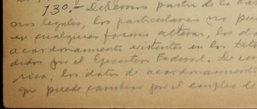 730.- Debemos partir de la ba
ones legales, los particulares no pue
en cualquiera forma alterar, los da
acordonamiento existentes en los tít
didos por el Ejecutivo Federal. De con
rica, los datos de acordonamiento
que puede cambiar por el simple de